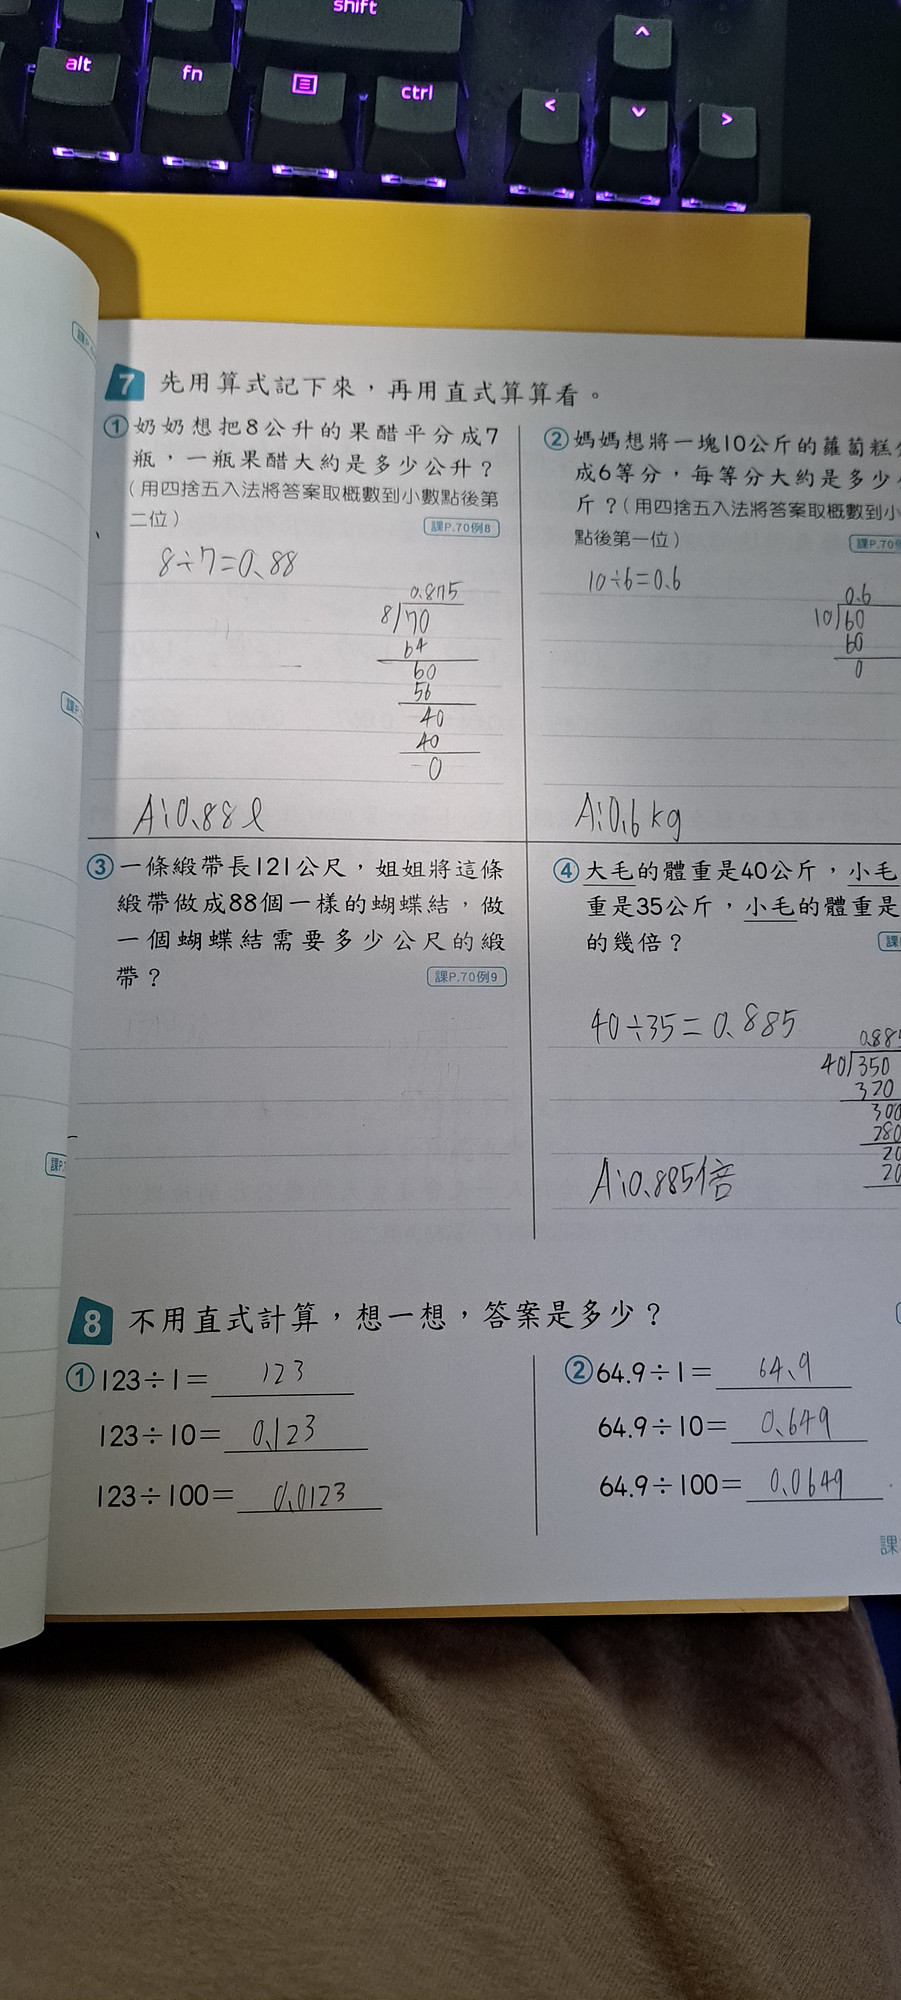 shift
alt
fn
ctrl
7 先用算式記下來，再用直式算算看。
① 奶奶想把8公升的果醋平分成7
瓶，一瓶果醋大約是多少公升？
（用四捨五入法將答案取概數到小數點後第
二位）
課P.70例8
8÷7=0.88
0.875
8/70
64
60
56
40
40
0
A:0.88ℓ
② 媽媽想將一塊10公斤的蘿蔔糕
成6等分，每等分大約是多少
斤？（用四捨五入法將答案取概數到小
點後第一位）
課P.70
10÷6=0.6
0.6
10/60
60
0
A:0.6kg
③ 一條緞帶長121公尺，姐姐將這條
緞帶做成88個一樣的蝴蝶結，做
一個蝴蝶結需要多少公尺的緞
帶？
課P.70例9
④ 大毛的體重是40公斤，小毛
重是35公斤，小毛的體重是
的幾倍？
課
40÷35=0.885
0.885
40/350
320
300
280
20
20
A:0.885倍
8 不用直式計算，想一想，答案是多少？
① 123÷1= 123
123÷10= 0.123
123÷100= 0.0123
② 64.9÷1= 64.9
64.9÷10= 0.649
64.9÷100= 0.0649
課